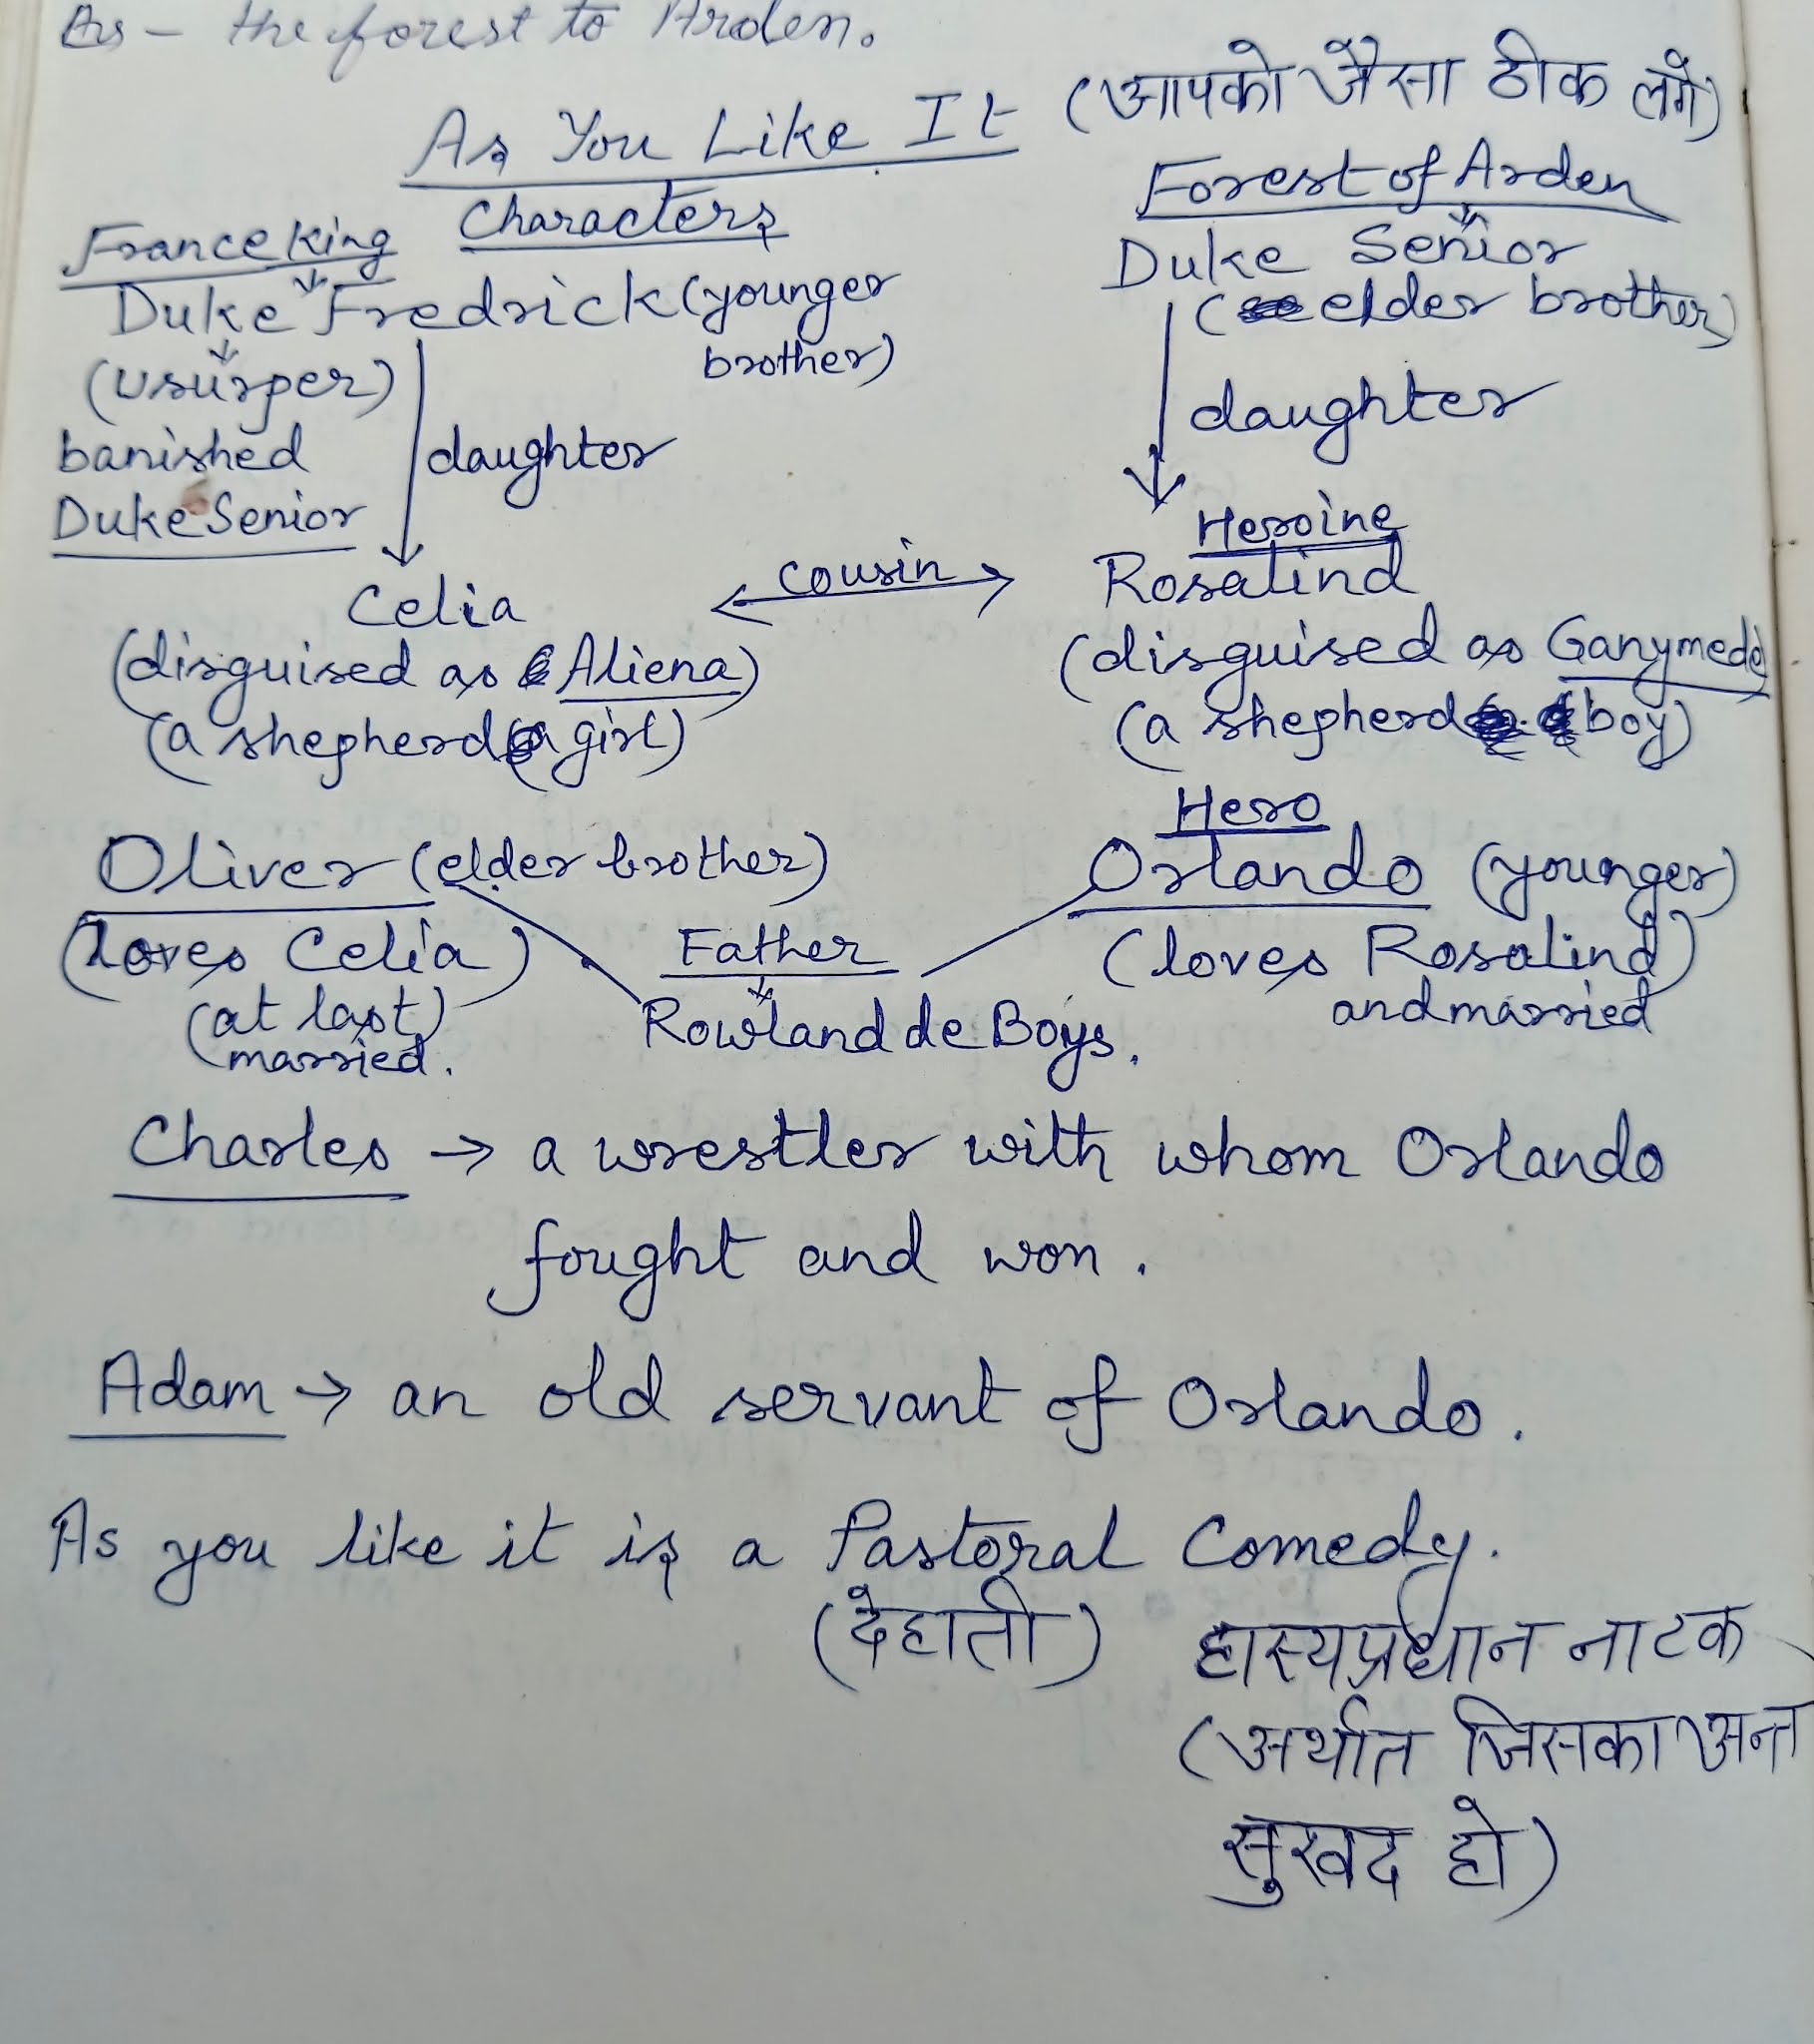 Ans - the forest to Arden.
As You Like It (आपको जैसा ठीक लगे)
Characters
France King
Duke Fredrick (younger brother)
(usurper)
banished
Duke Senior
daughter
Forest of Arden
Duke Senior
(elder brother)
daughter
Heroine
Celia cousin Rosalind
(disguised as Aliena)
(a shepherd girl)
(disguised as Ganymede)
(a shepherd boy)
Hero
Oliver (elder brother)
(loves Celia)
(at last)
(married.
Father
Rowland de Boys.
Orlando (younger)
(loves Rosalind)
and married
Charles → a wrestler with whom Orlando
fought and won.
Adam → an old servant of Orlando.
As you like it is a Pastoral Comedy.
(देहाती) हास्यप्रधान नाटक
(अर्थात जिसका अन्त
सुखद हो)